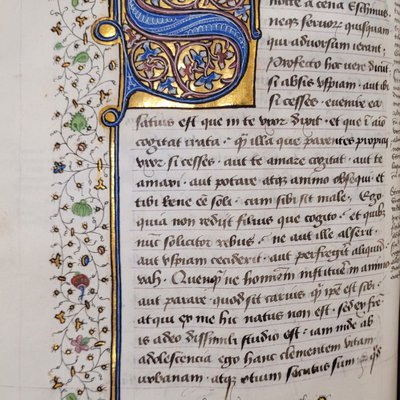 nocte a cena Eschinus
neqꝫ seruorꝝ quisquam
qui aduorsum ierant.
Profecto hoc uere dicūt
si absis uspiam aut ibi
si cesses. euenire ea
satius est que in te uxor dicit. et que ī aīo
cogitat irata. qͫ illa que parentes propicij
uxor si cesses. aut te amare cogitat. aut te
amari. aut potare atqꝫ animo obsequi. et
tibi bene eē soli. cum sibi sit male. Ego
quia non redijt filius que cogito. et quibꝰ
nūc solicitor rebus. ne aut ille alserit.
aut uspiam ceciderit. aut perfregerit aliquid
vah. Quenqͫ ne hominem instituere in animo
aut parare. quod sit carius. qͫ ipe est sibi.
atqui ex me hic natus non est. sed ex fre
is adeo dissimili studio est. iam inde ab
adolescencia. ego hanc clementem vitam
urbanam. atqꝫ otium secutus sum. qd